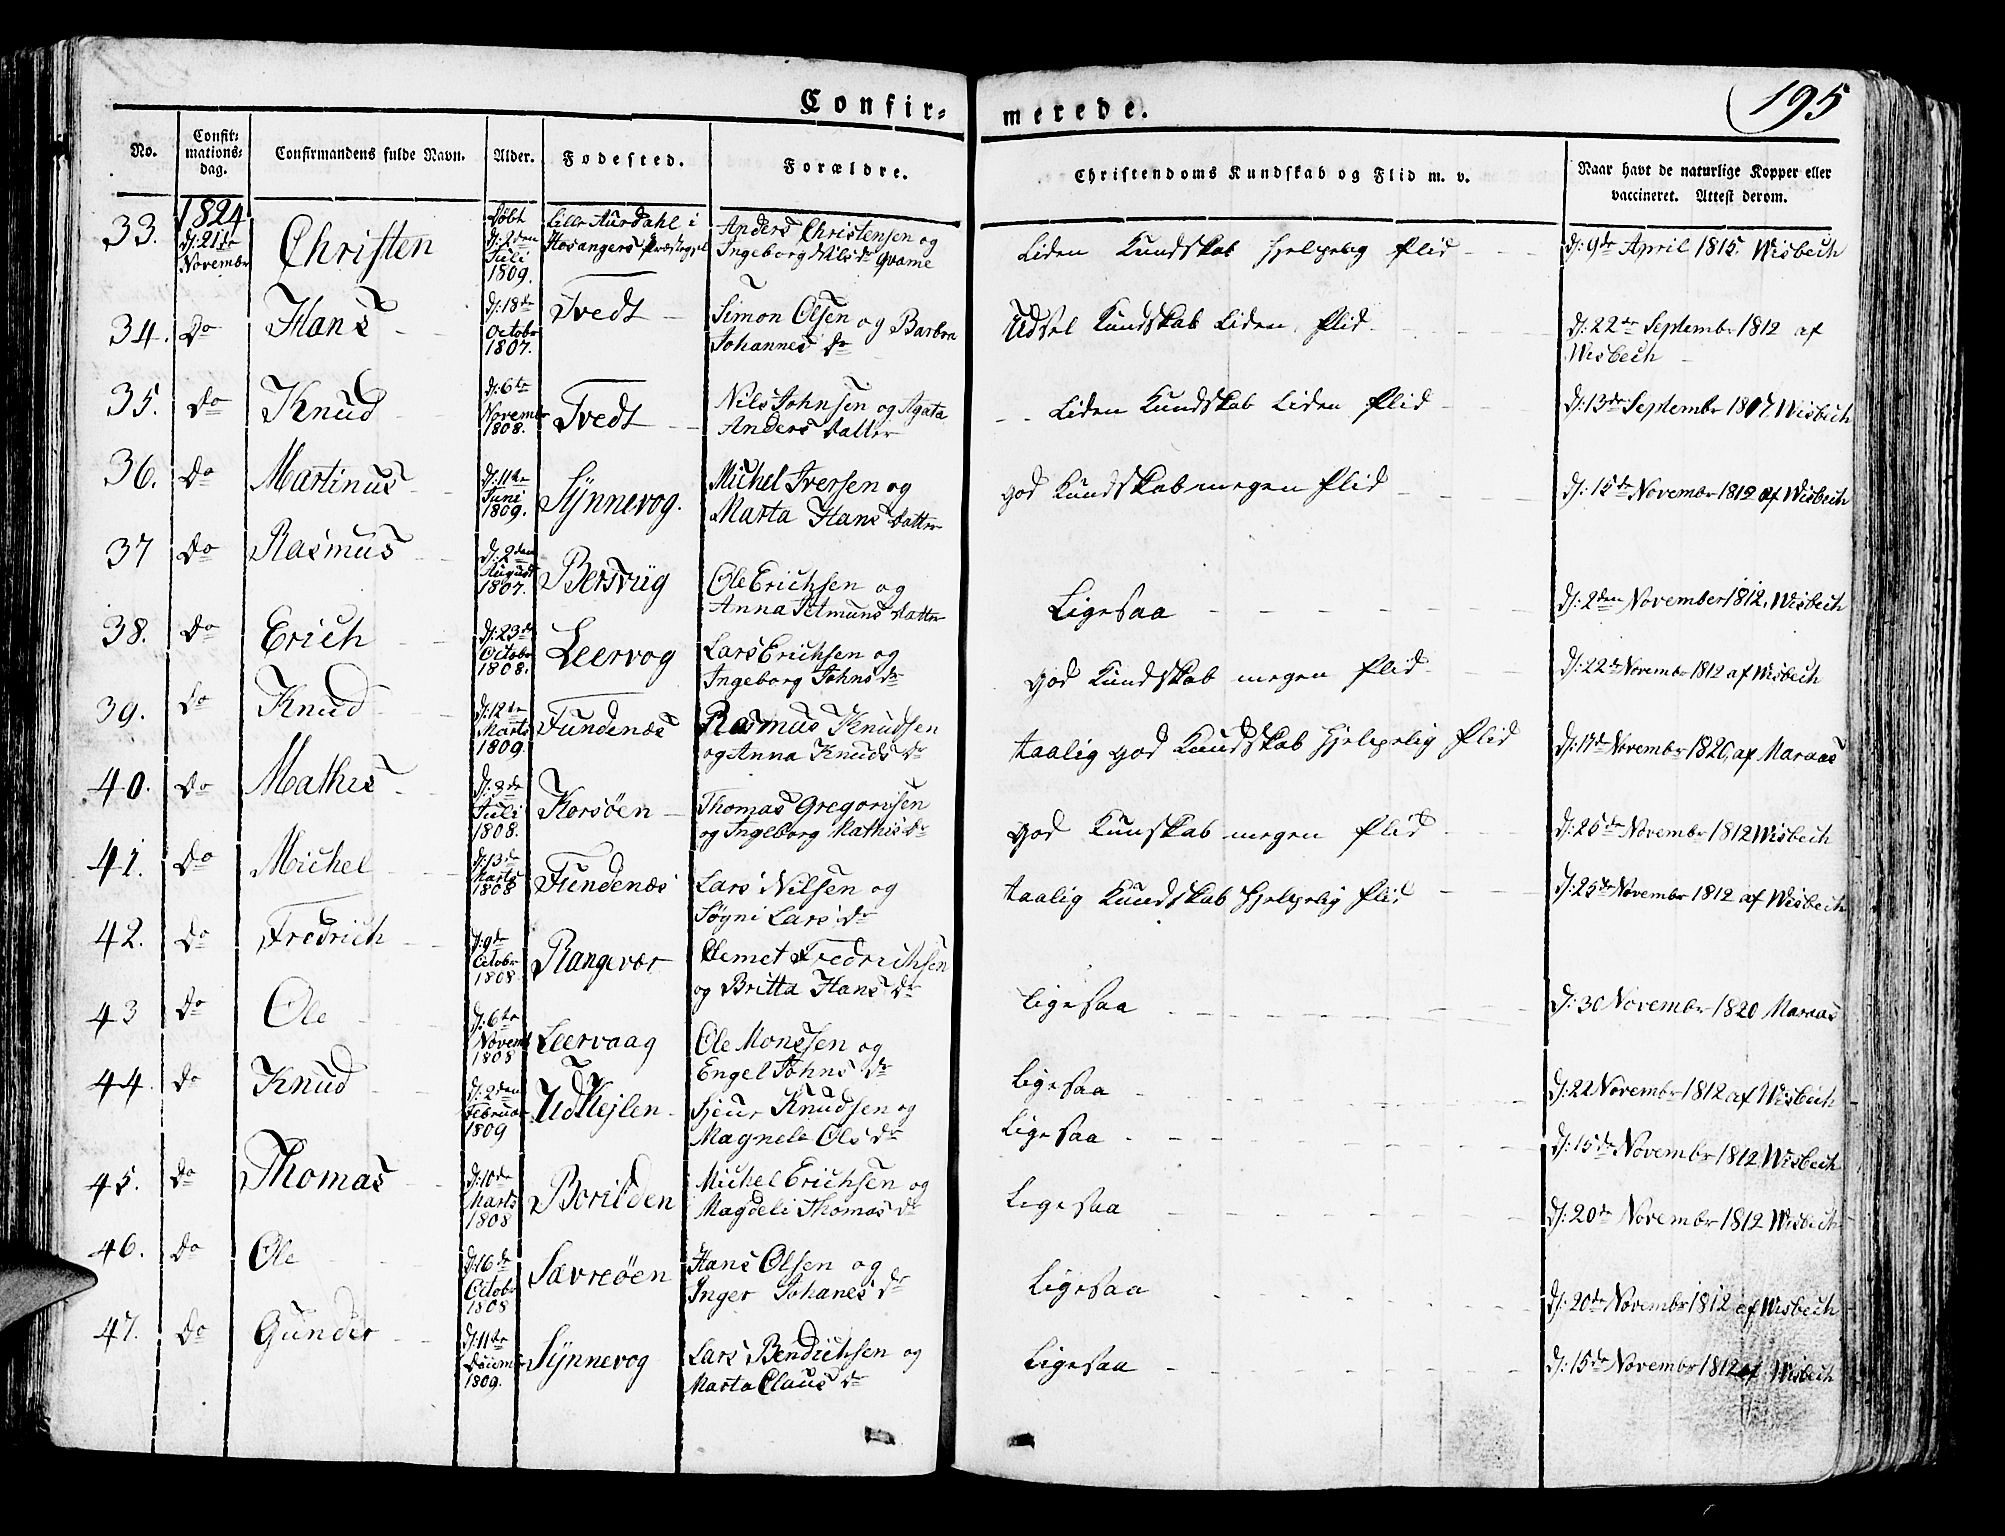 Confir-
merede.
195
No.
Confir-
mations-
dag.
Confirmandens fulde Navn.
Alder.
Fødested.
Forældre.
Christendoms Kundskab og Flid m. v.
Naar havt de naturlige Kopper eller
vaccineret. Attest derom.
33.
1824
d: 21de
Novembr
Christen
Døbt
d: 2den
Juli
1809.
Lille Aurdahl i
Hosangers Præstegjel
Anders Christensen og
Ingeborg Nilsdr Qvame
Liden Kundskab hjelpelig Flid
d: 9de April 1815. Wisbech
34.
Do
Hans
d: 18de
Octobr
1807.
Tvedt
Simon Olsen og Barbra
Johannes dr
Udsel Kundskab Liden Flid
d: 22de Septembr 1812 af
Wisbech
35.
Do
Knud
d: 6te
Novembr
1808.
Tvedt
Nils Johnsen og Agata
Anders datter
Liden Kundskab Liden Flid
d: 13de Septembr Wisbech
36.
Do
Martinus
d: 11te
Juni
1809.
Synnevog.
Michel Iversen og
Marta Hans datter
god Kundskab megen Flid
d: 15de Novembr 1812 af Wisbech
37
Do
Rasmus
d: 2den
August
1807.
Ole Erichsen og
Anna datter
Ligesaa
d: 2den November 1812. Wisbech
38.
Do
Erich
d: 23de
Octobr
1808.
Leervog
Lars Erichsen og
Ingeborg Johns dr
god Kundskab megen Flid
d: 22de Novembr 1812 af Wisbech
39.
Do
Knud
d: 12te
Marts
1809.
Fundenæs
Rasmus Knudsen
og Anna Knuds dr
taalig god Kundskab hjelpelig Flid
d: 17de Novembr 1820, af Maraas
40.
Do
Mathis
d: 3de
Juli
1808.
Korsøen
Thomas Gregorisen
og Ingeborg Mathis dr
god Kunskab megen Flid
d: 25de Novembr 1812 Wisbech
41.
Do
Michel
d: 13de
Marts
1808
Fundenæs
Lars Nilsen og
Søgni Lars dr
taalig Kundskab hjelpelig Flid
d: 25de Novembr 1812 af Wisbech
42.
Do
Fredrich
d: 9de
Octobr
1808
Rangevær
Clemet Fredrichsen
og Britta Hans dr
ligesaa
d: 30 Novembr 1820 Maraas
43
Do
Ole
d: 6te
Novemb
1808
Leervaag
Ole Monssen og
Engel Johns dr
ligesaa
d: 22 Novembr 1812 af Wisbech
44.
Do
Knud
d: 2den
Februar
1809
Sjeur Knudsen og
Magnele Ols dr
Ligesaa
d: 15de Novembr 1812 Wisbech
45.
Do
Thomas
d: 10de
Marts
1808
Borilden
Michel Erichsen og
Magdeli Thomas dr
Ligesaa
d: 20de Novembr 1812 Wisbech
46.
Do
Ole
d: 16de
Octobr
1808
Sævreöen
Hans Olsen og
Inger Johanes dr
Ligesaa
d: 20de Novembr 1812 af Wisbech
47.
Do
Gunder
d: 11te
1809.
Synnevog
Lars Bendichsen og
Marta Claus dr
Ligesaa
d: 15de Novembr 1812 af Wisbech